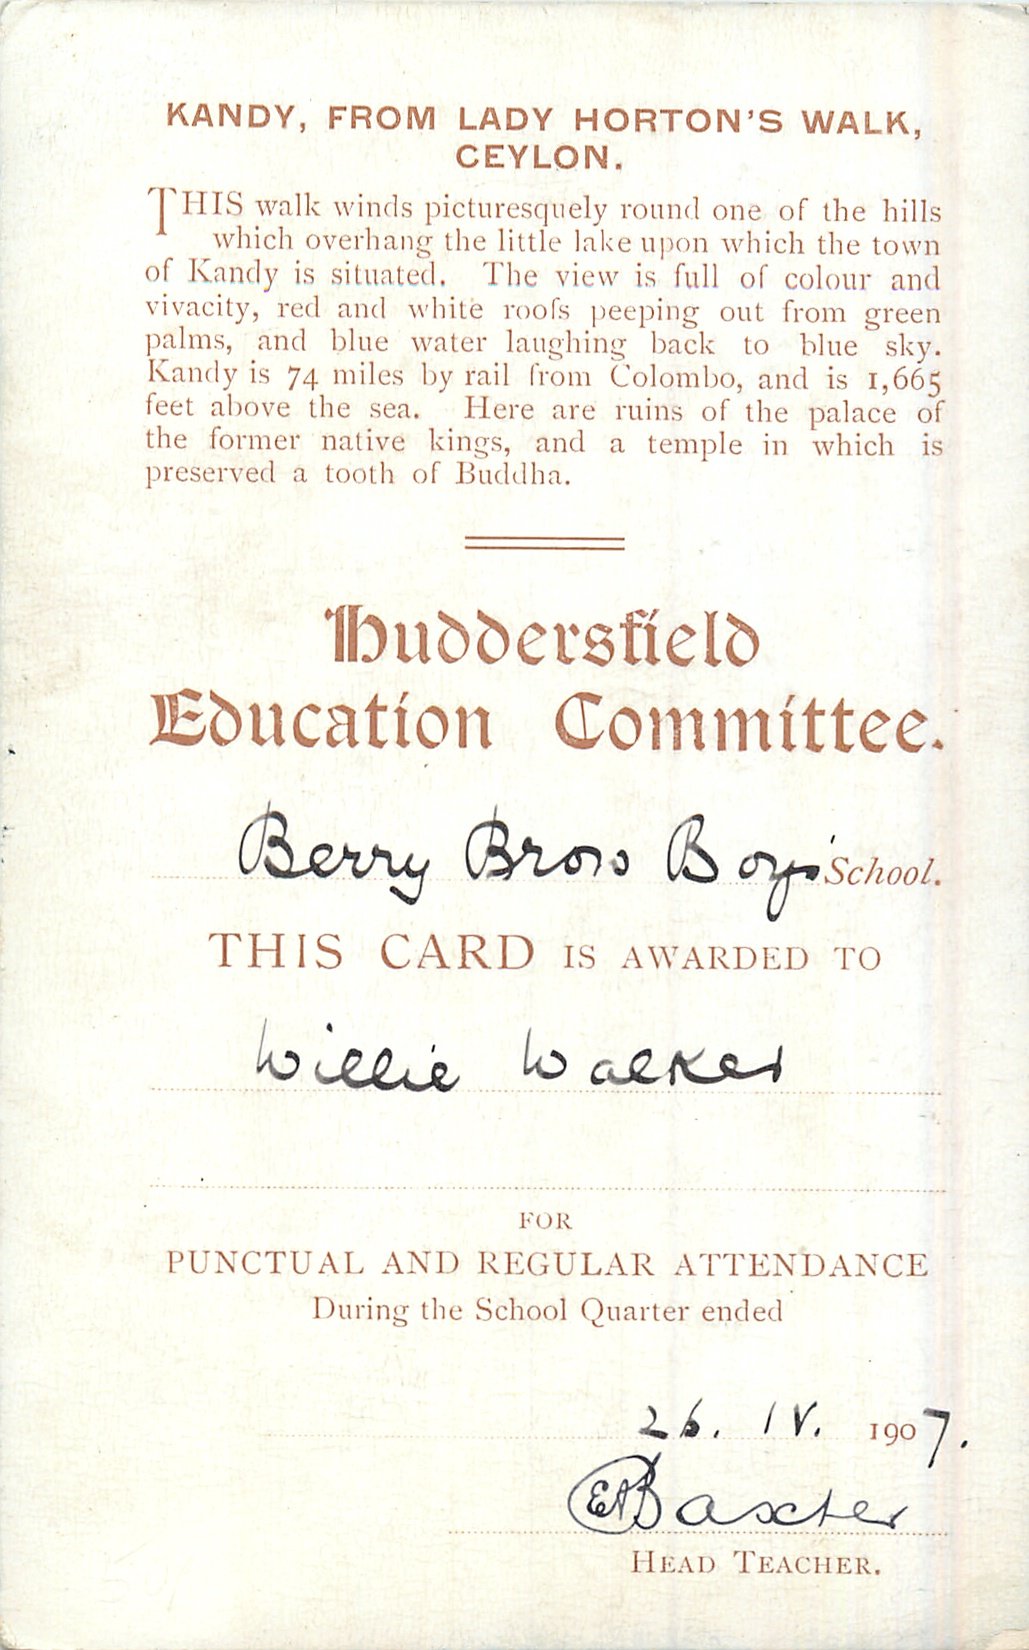 KANDY, FROM LADY HORTON'S WALK,
CEYLON.
THIS walk winds picturesquely round one of the hills
which overhang the little lake upon which the town
of Kandy is situated. The view is full of colour and
vivacity, red and white roofs peeping out from green
palms, and blue water laughing back to blue sky.
Kandy is 74 miles by rail from Colombo, and is 1,665
feet above the sea. Here are ruins of the palace of
the former native kings, and a temple in which is
preserved a tooth of Buddha.
Huddersfield
Education Committee.
Berry Brow Boys' School.
THIS CARD IS AWARDED TO
Willie Walker
FOR
PUNCTUAL AND REGULAR ATTENDANCE
During the School Quarter ended
26. IV. 1907.
EABaxter
HEAD TEACHER.